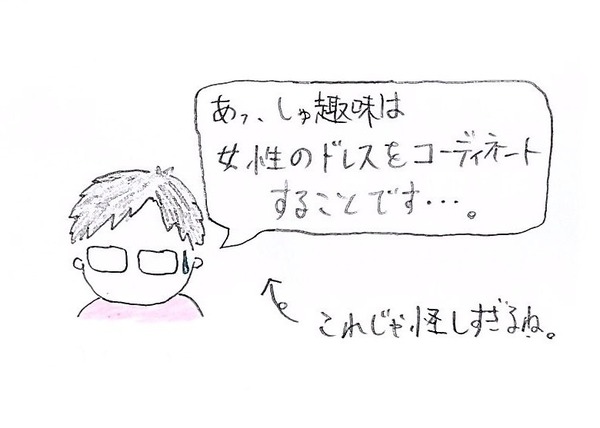 あっ、しゅ趣味は
女性のドレスをコーディネート
することです・・・。
これじゃ怪しすぎるね。